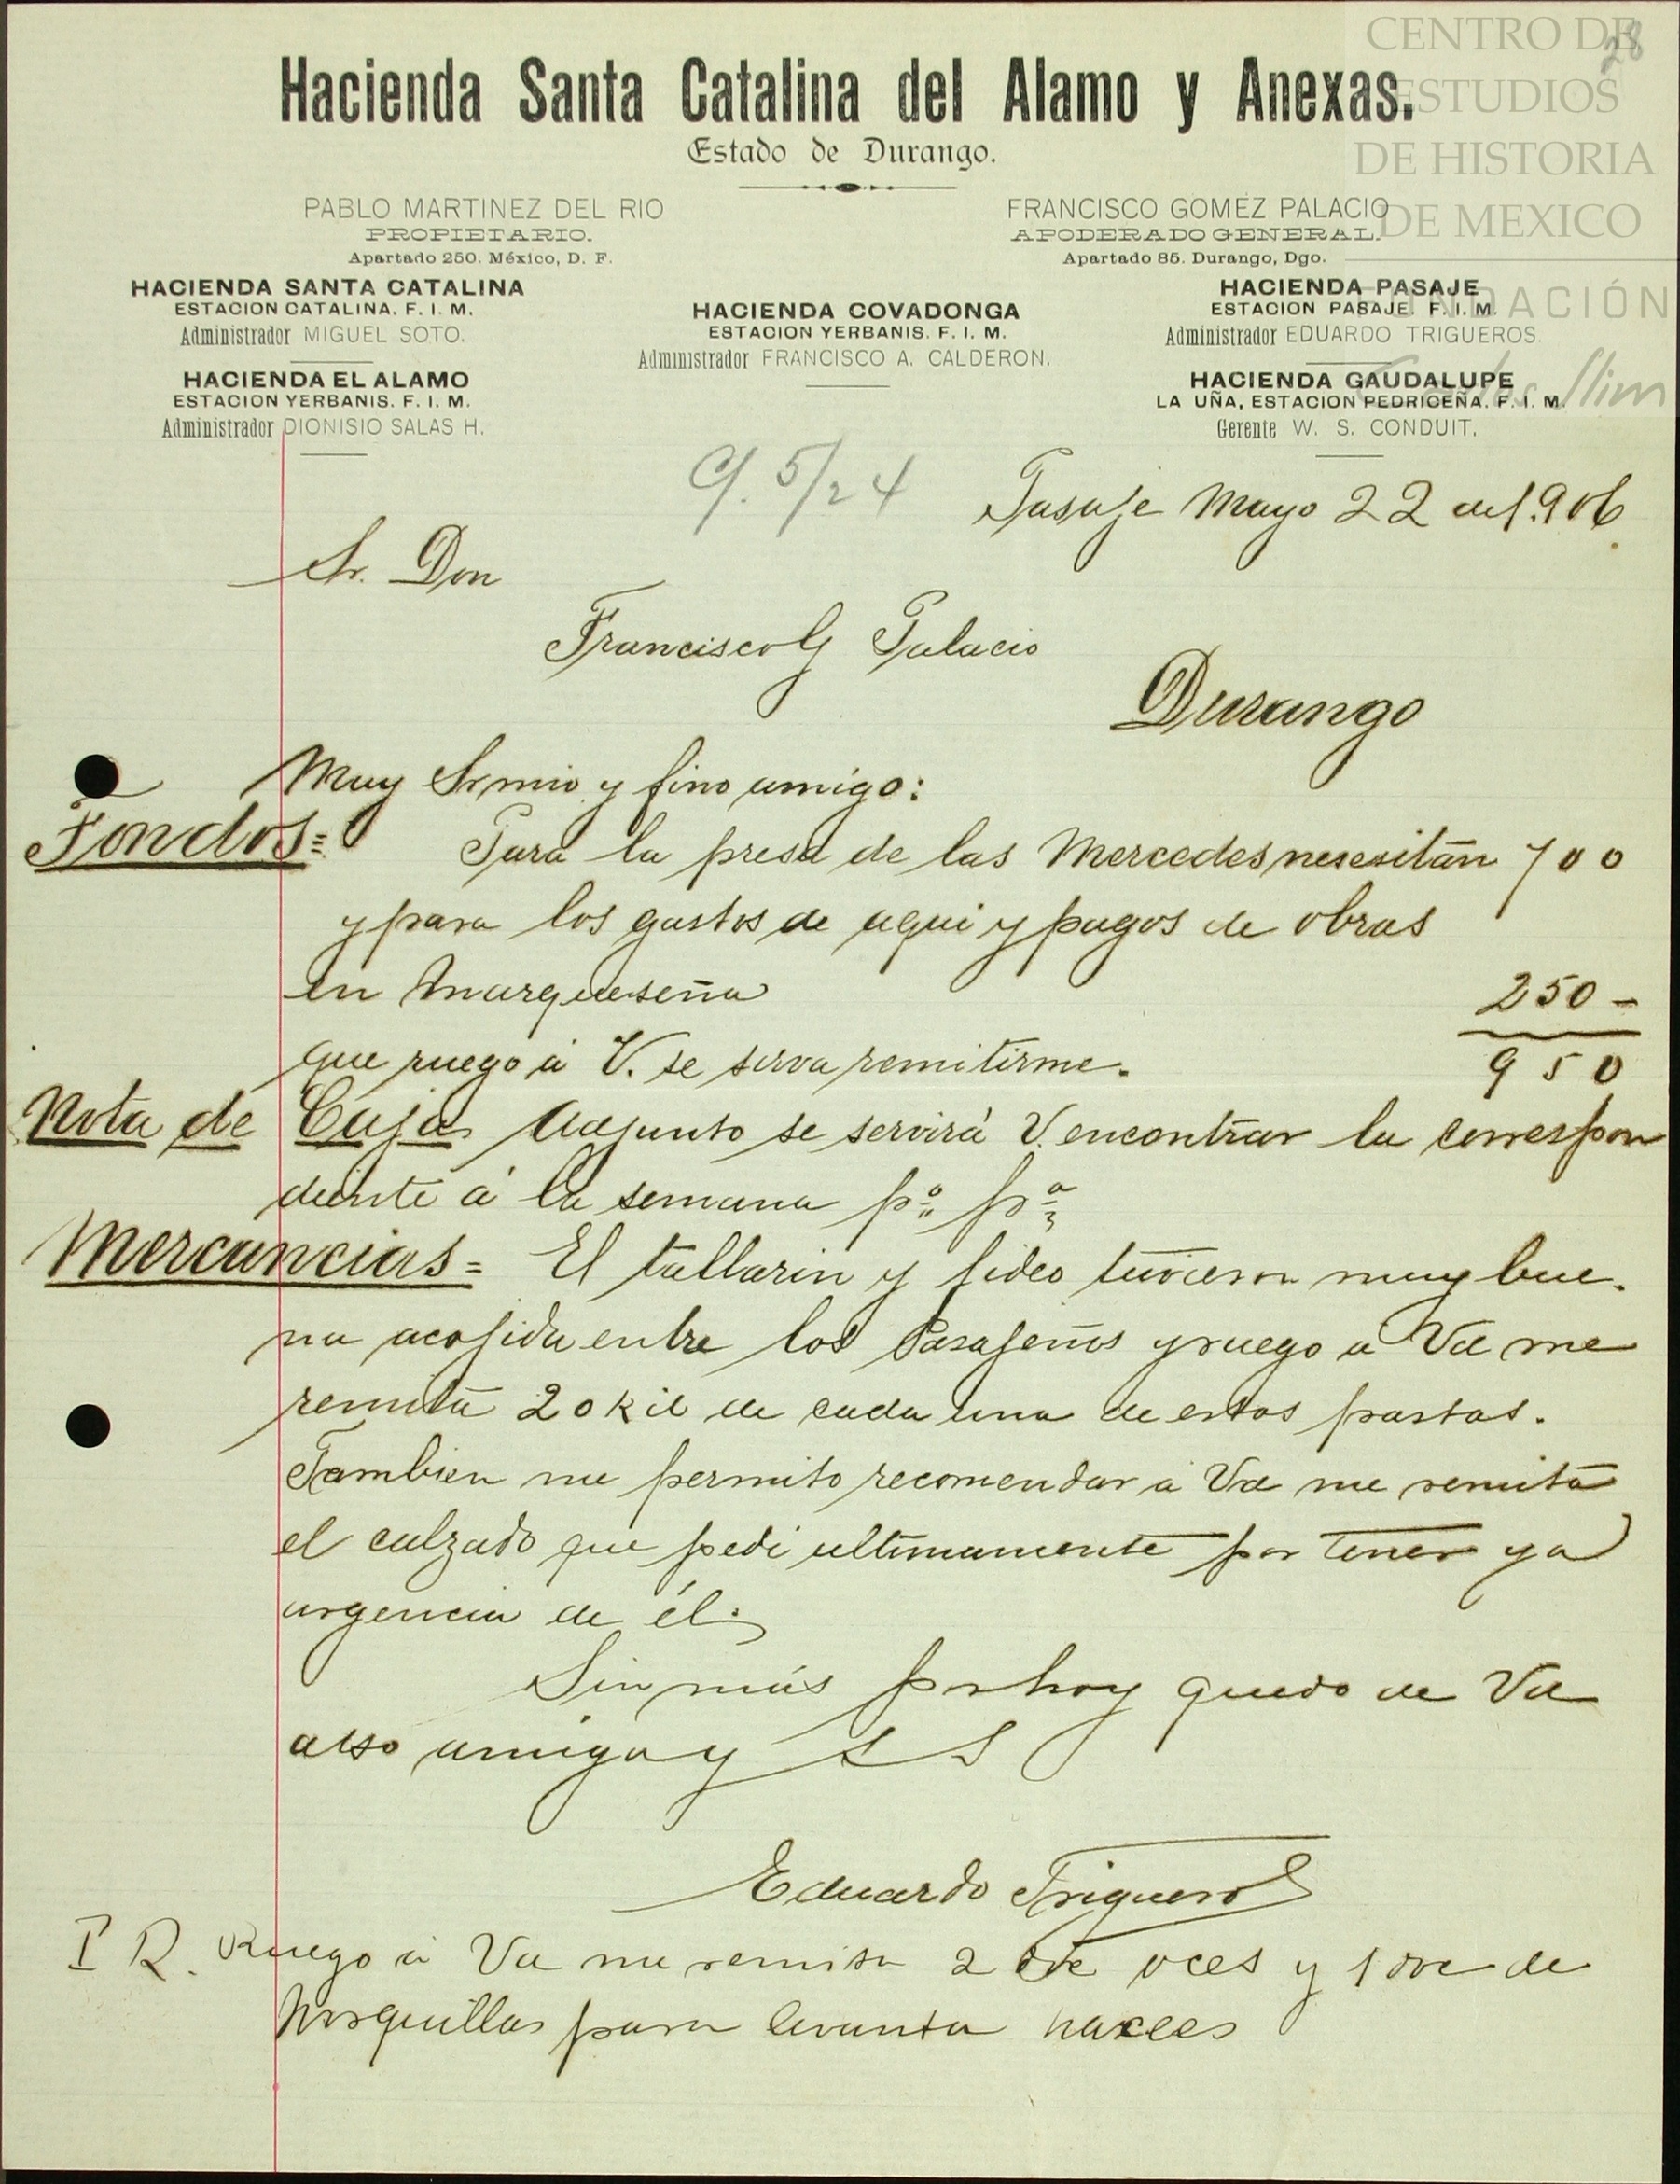 CENTRO DE
ESTUDIOS
DE HISTORIA
DE MEXICO
FUNDACIÓN
Carlos Slim
28
Hacienda Santa Catalina del Alamo y Anexas.
Estado de Durango.
PABLO MARTINEZ DEL RIO
PROPIETARIO.
Apartado 250. México, D. F.
FRANCISCO GOMEZ PALACIO
APODERADO GENERAL.
Apartado 85. Durango, Dgo.
HACIENDA SANTA CATALINA
ESTACION CATALINA. F. I. M.
Administrador MIGUEL SOTO.
HACIENDA EL ALAMO
ESTACION YERBANIS. F. I. M.
Administrador DIONISIO SALAS H.
HACIENDA COVADONGA
ESTACION YERBANIS. F. I. M.
Administrador FRANCISCO A. CALDERON.
HACIENDA PASAJE
ESTACION PASAJE. F. I. M.
Administrador EDUARDO TRIGUEROS.
HACIENDA GAUDALUPE
LA UÑA, ESTACION PEDRICEÑA. F. I. M.
Gerente W. S. CONDUIT.
C/. 5/24
Pasaje Mayo 22 de 1.906
Sr. Don
Francisco G Palacio
Durango
Muy Sr mio y fino amigo:
Fondos= Para la presa de las Mercedes nesesitan 700
y para los gastos de aqui y pagos de obras
en Marqueseña 250 -
que ruego á V. se sirva remitirme. 950
Nota de Caja Adjunto se servirá V. encontrar la correspon
diente á la semana pº pª
Mercancias= El tallarin y fideo tuvieron muy bue.
na acojida entre los Pasajeños y ruego a Vd me
remita 20 kil de cada una de estas pastas.
Tambien me permito recomendar á Vd me remita
el calzado que pedi ultimamente por tener ya
urgencia de él.
Sin más por hoy quedo de Vd
atso amigo y S S
Eduardo Trigueros
P R. Ruego á Vd me remita 2 oces y 1 de
horquillas para levanta